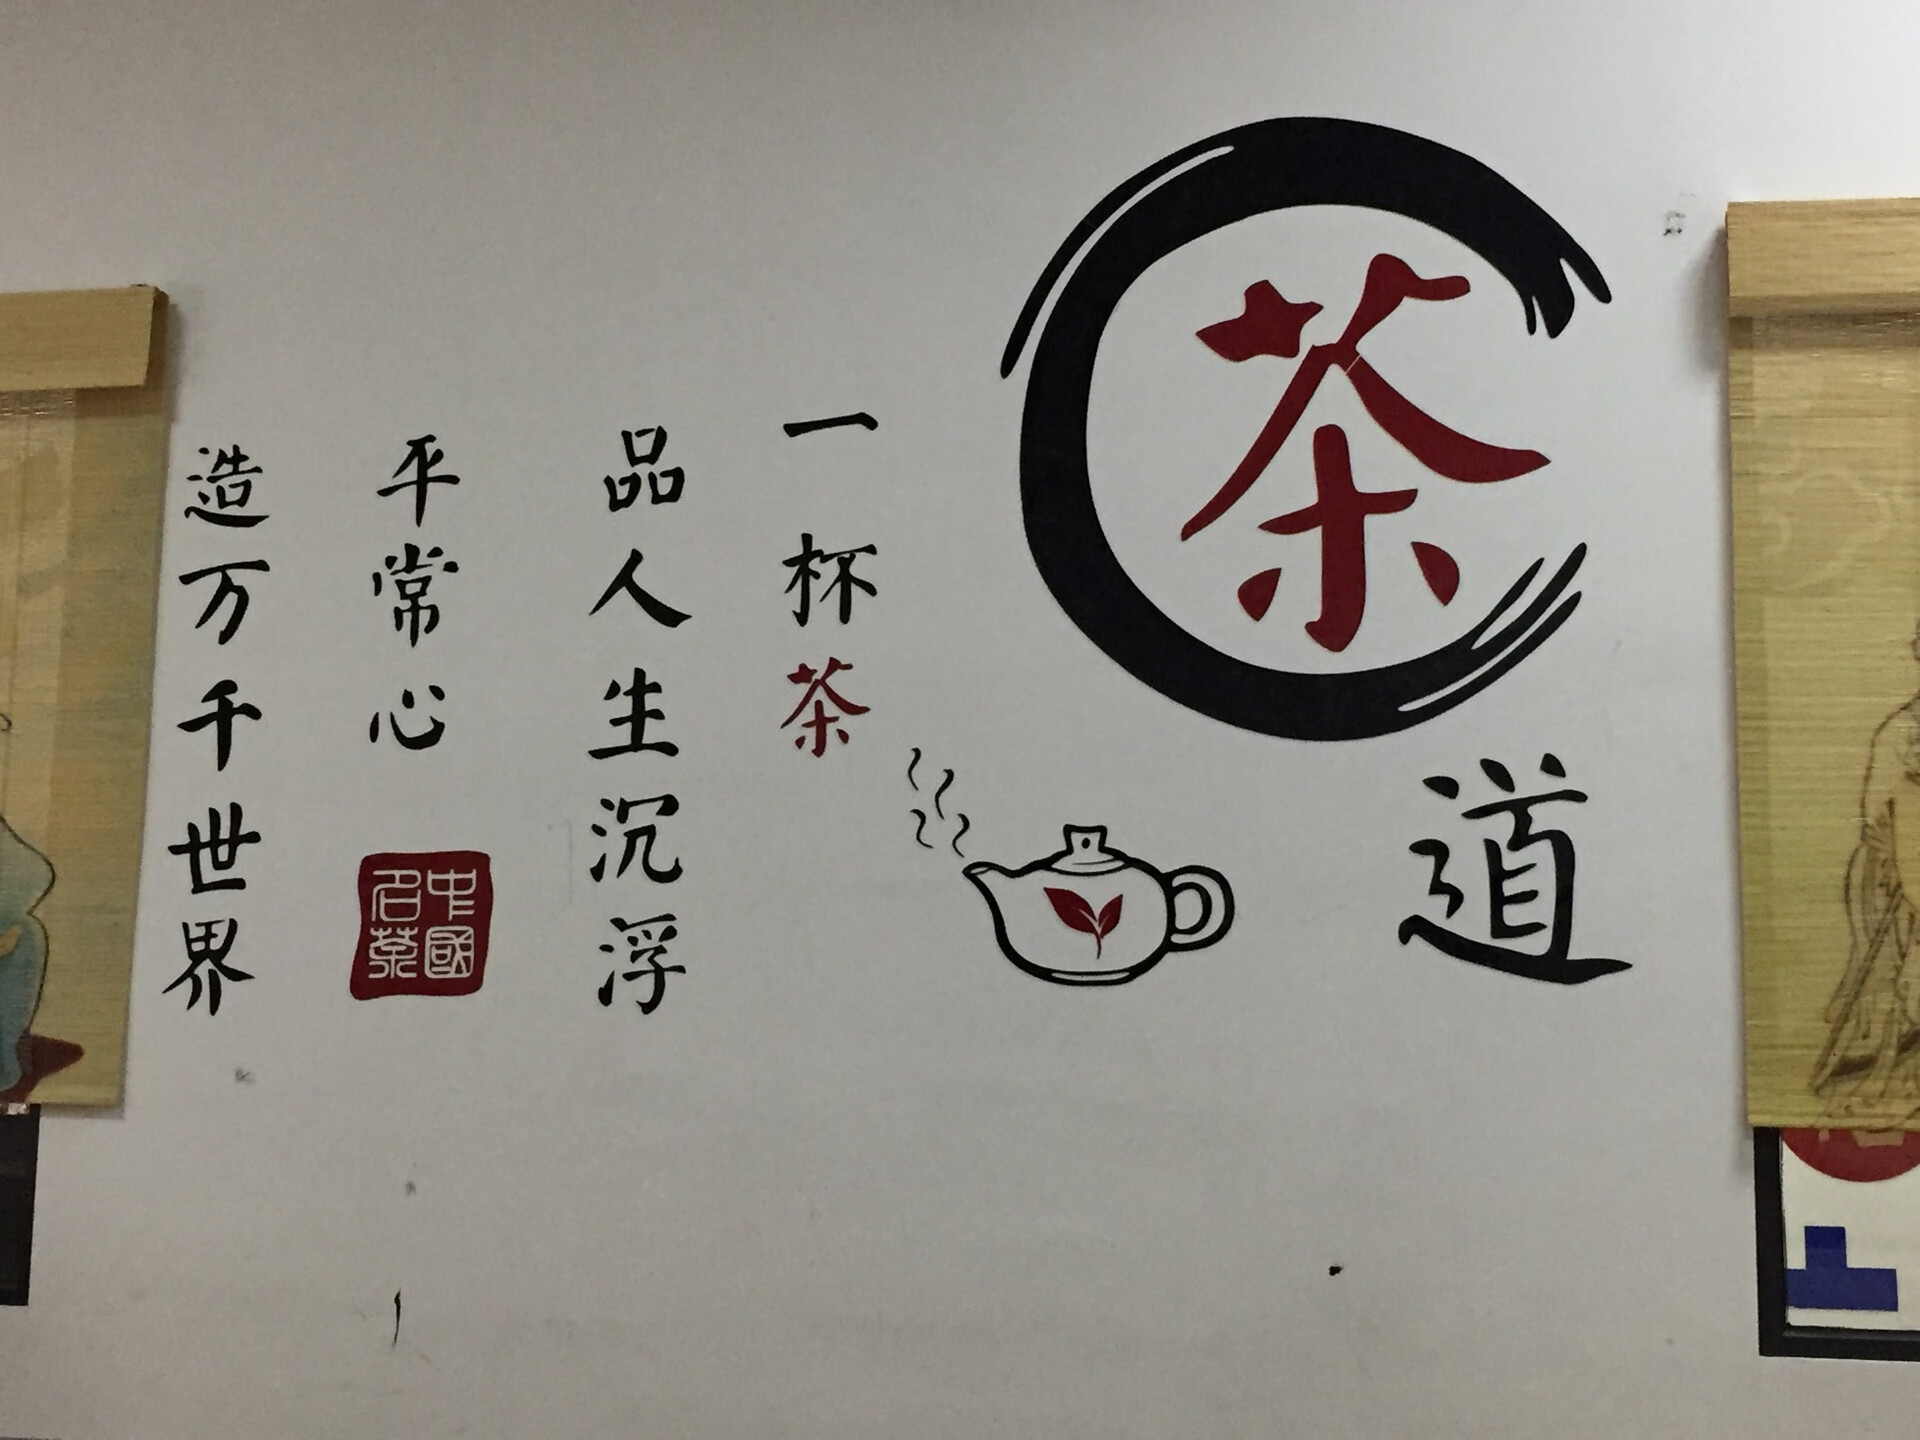 茶
道
一杯茶
品人生沉浮
平常心
造万千世界
中國
名茶